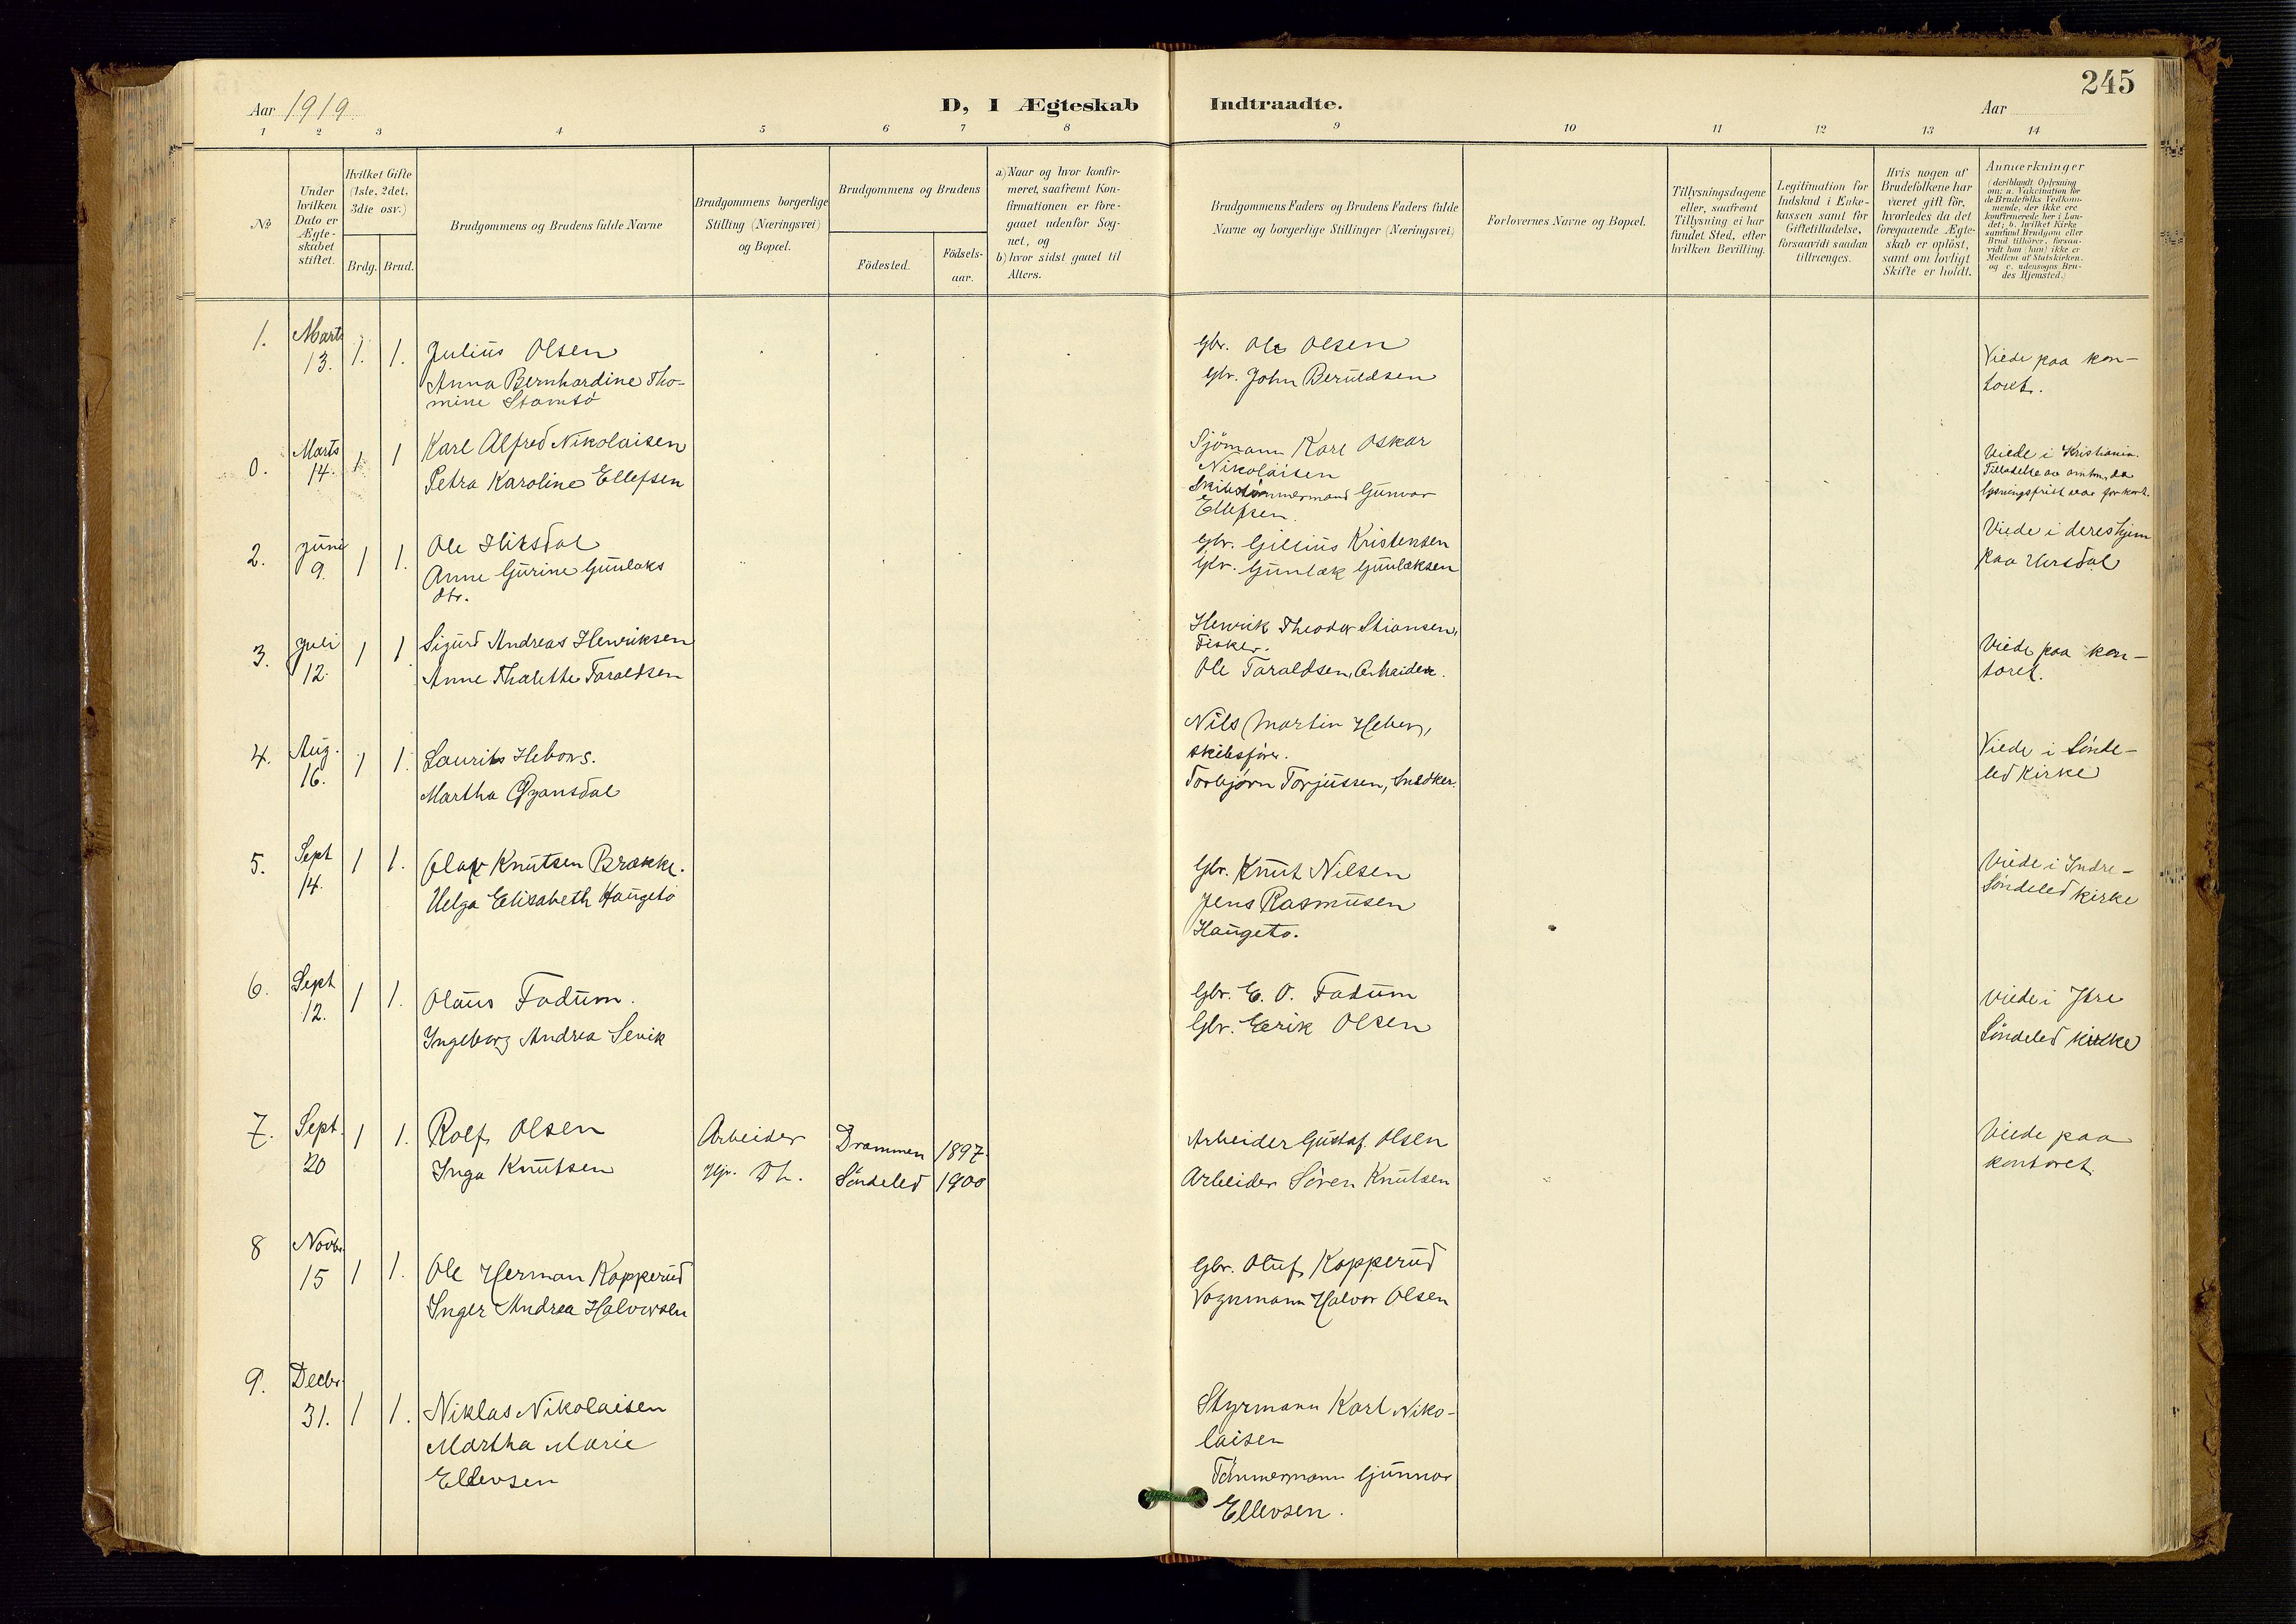 245
Aar 1919
D, I Ægteskab Indtraadte.
Aar
1 2 3 4 5 6 7 8 9 10 11 12 13 14
No
Under hvilken Dato er Ægte-skabet stiftet.
Hvilket Gifte (1ste, 2det, 3die osv.)
Brdg. Brud.
Brudgommens og Brudens fulde Navne
Brudgommens borgerlige Stilling (Næringsvei) og Bopœl.
Brudgommens og Brudens
Födested.
Födsels-aar.
a) Naar og hvor konfir-
meret, saafremt Kon-
firmationen er fore-
gaaet udenfor Sog-
net, og
b) hvor sidst gaaet til
Alters.
Brudgommens Faders og Brudens Faders fulde
Navne og borgerlige Stillinger (Næringsvei)
Forlovernes Navne og Bopœl.
Tillysningsdagene
eller, saafremt
Tillysning ei har
fundet Sted, efter
hvilken Bevilling.
Legitimation for
Indskud i Enke-
kassen samt for
Giftetilladelse,
forsaavidt saadan
tiltrænges.
Hvis nogen af
Brudefolkene har
været gift før,
hvorledes da det
foregaaende Ægte-
skab er oplöst,
samt om lovligt
Skifte er holdt.
Anmærkninger
(deriblandt Oplysning
om: a. Vakcination for
de Brudefolks Vedkom-
mende, der ikke ere
konfirmerede her i Lan-
det; b. hvilket Kirke
samfund Brudgom eller
Brud tilhører, forsaa-
vidt han (hun) ikke er
Medlem af Statskirken.
og c. udensogns Bru-
des Hjemsted.)
1. Marts 13. 1. 1. Julius Olsen
Anna Bernhardine Tho-
mine Stamsö
Gbr. Ole Olsen
Gbr. John Beruldsen
Viede paa kon-
toret.
0. Marts 14. 1 1 Karl Alfred Nikolaisen
Petra Karoline Ellefsen
Sjömann Karl Oskar
Nikolaisen
Skibstömmermand Gunvor
Ellefsen.
Viede i Kristiania.
Tilladelse av amtm., da
lysningsfrist var for kort.
2. Juni 9. 1 1. Ole
Anne Gurine Gunlaks
dtr.
Gbr. Gillius Kristensen
Gbr. Gunlak Gunlaksen
Viede i deres hjem
paa
3. Juli 12. 1 1 Sigurd Andreas Henriksen
Anne Thalette Taraldsen
Henrik Theodor Stiansen,
Fisker.
Ole Taraldsen, Arbeider.
Viede paa kon-
toret.
4. Aug. 16. 1 1. Laurits
Martha
Nils Martin
skibsförer.
Torbjörn Torjussen, Snedker.
Viede i Sönde-
led Kirke
5. Sept 14. 1 1. Olav Knutsen Brække.
Helga Elisabeth Haugetö
Gbr. Knut Nilsen
Jens Rasmusen
Haugetö.
Viede i Indre-
Söndeled kirke
6. Sept 12. 1 1. Olaus Fadum.
Ingeborg Andrea Sevik
Gbr. E. O. Fadum
Gbr. Eerik Olsen
Viede i Ytre
Söndeled kirke
7. Sept. 20 1 1. Rolf Olsen
Inga Knutsen
Arbeider Drammen 1897
Hjr. Dh. Söndeled 1900
Arbeider Gustaf Olsen
Arbeider Sören Knutsen
Viede paa
kontoret.
8 Novbr. 15 1 1. Ole Herman Kopperud
Inger Andrea Halvorsen
Gbr. Oluf Kopperud
Vognmann Halvor Olsen
9. Decbr. 31. 1 1. Niklas Nikolaisen
Martha Marie
Ellevsen
Styrmann Karl Niko-
laisen
Tömmermann Gunnar
Ellevsen.